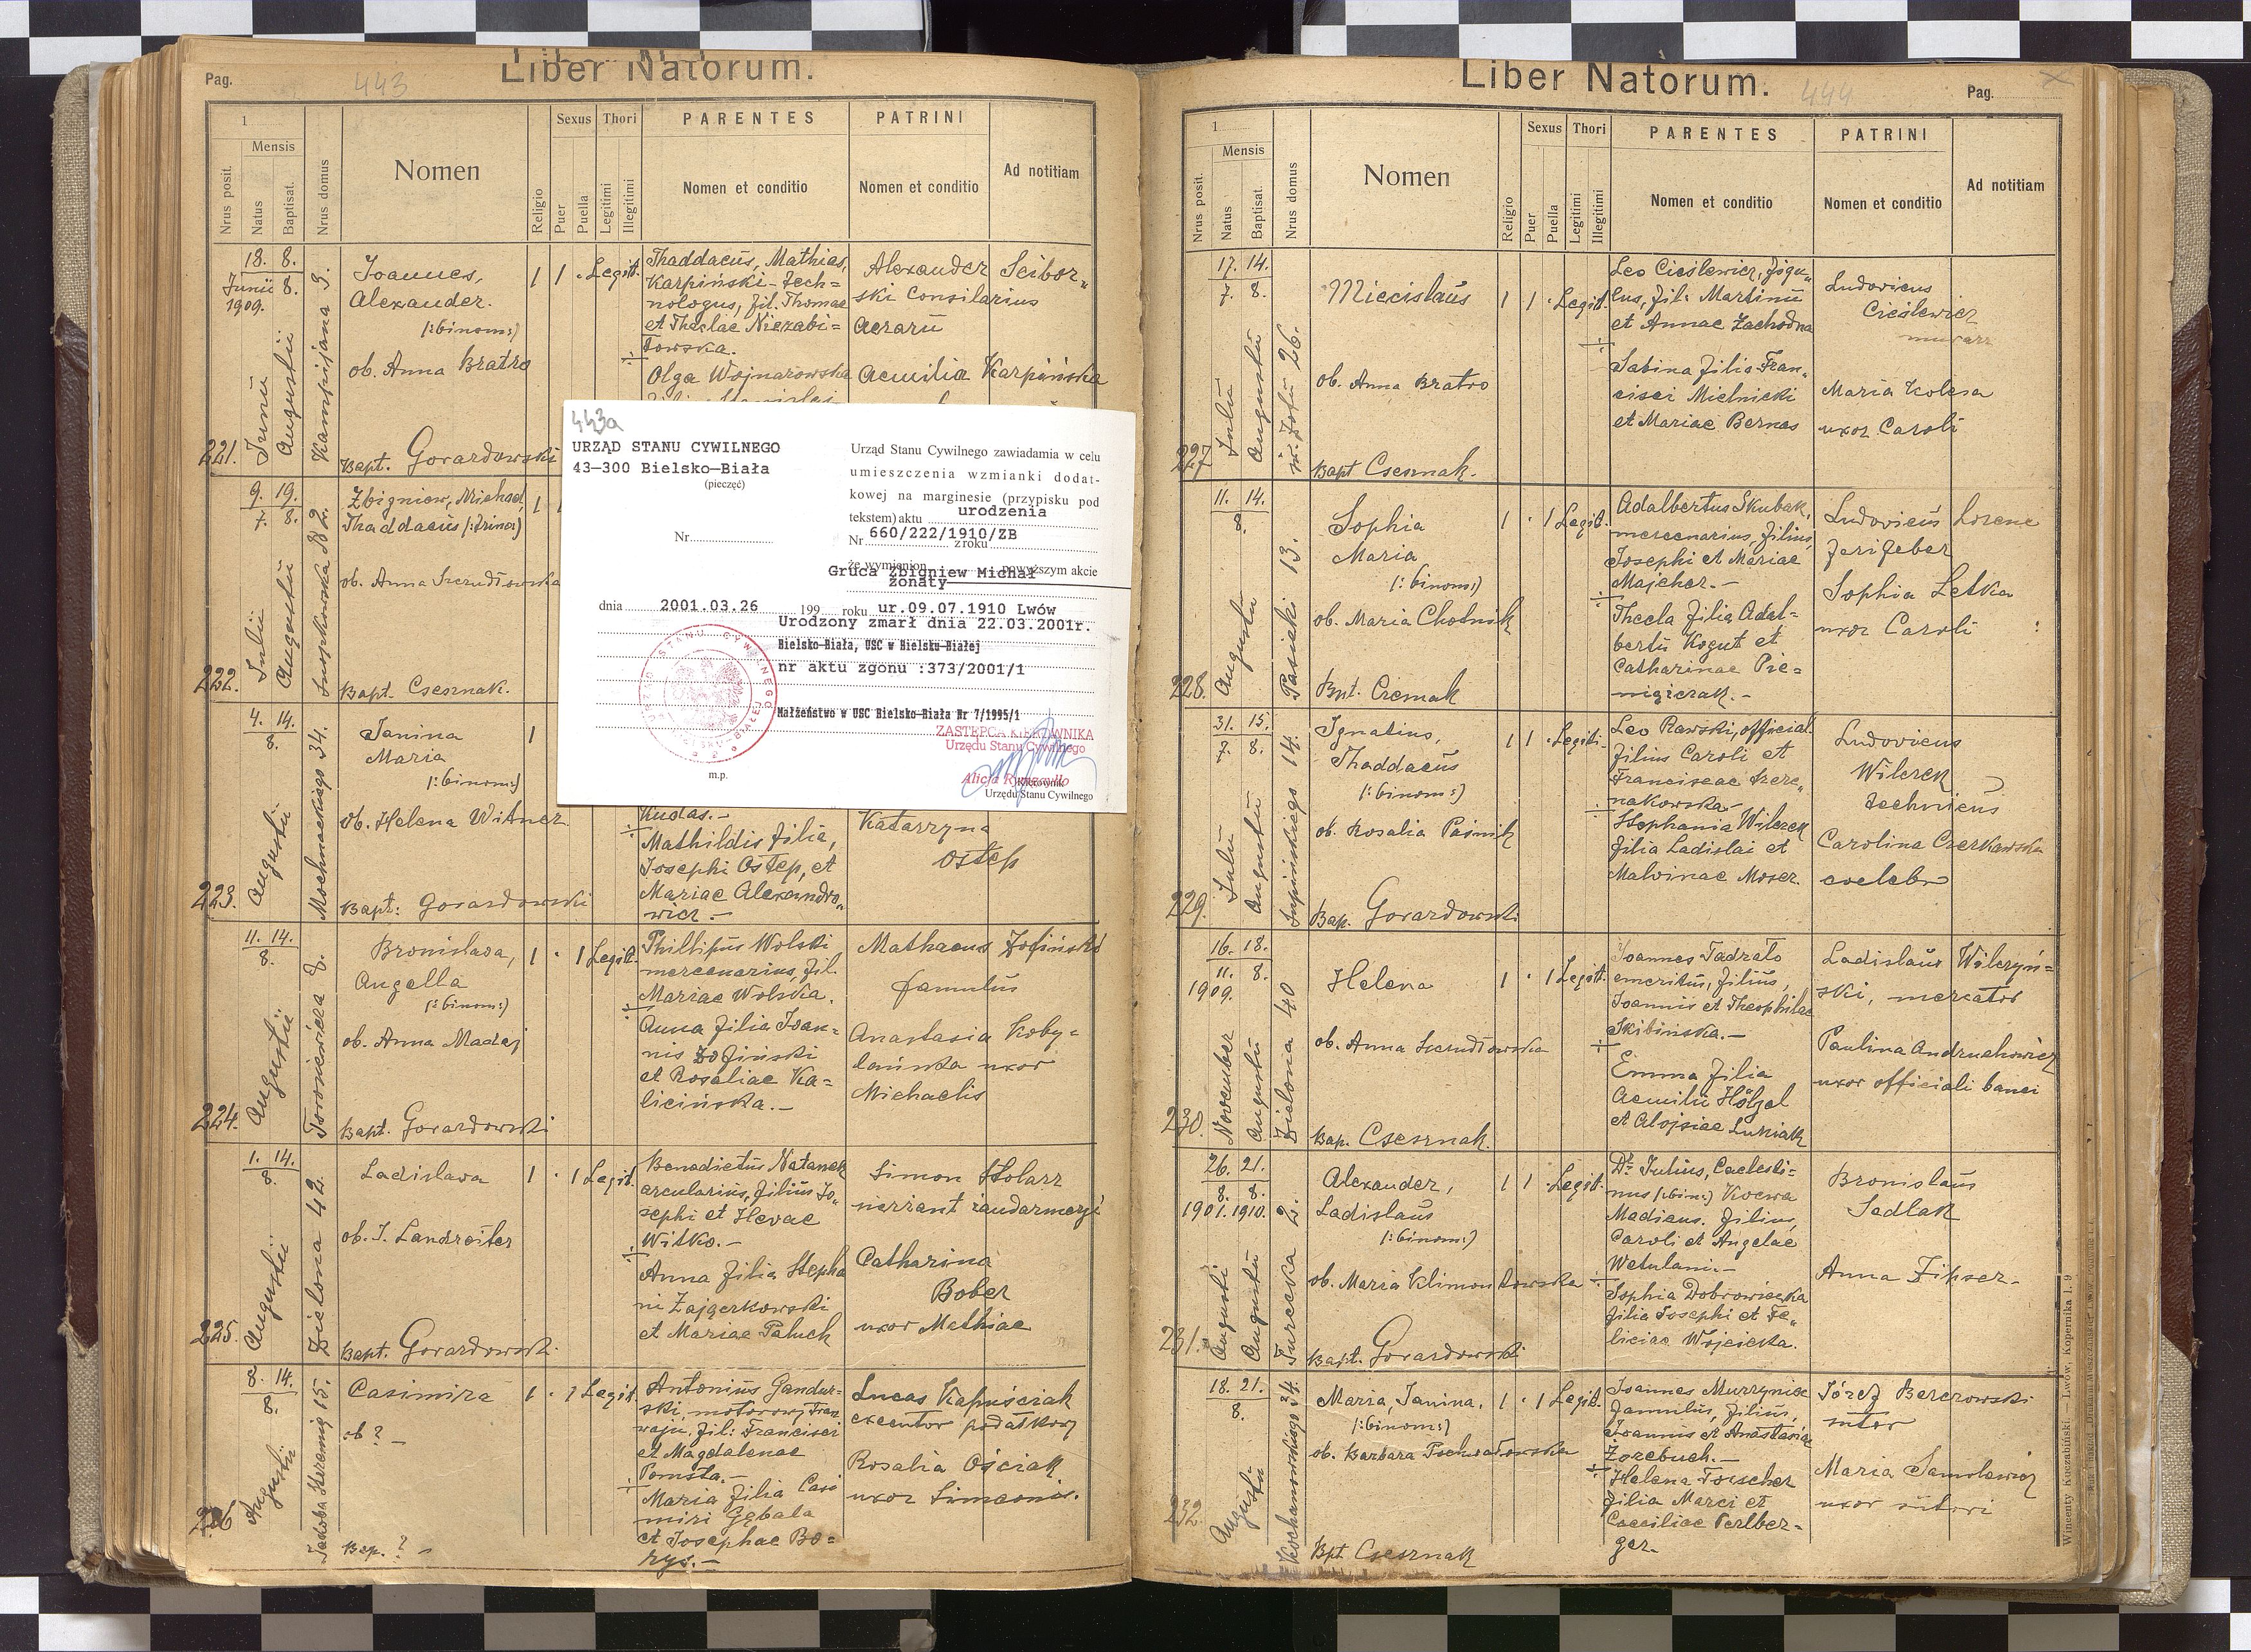 Pag.
443
Liber Natorum.
1
Mensis
Nrus posit.
Natus
Baptisat.
Nrus domus
Nomen
Religio
Sexus
Puer
Puella
Thori
Legitimi
Illegitimi
PARENTES
Nomen et conditio
PATRINI
Nomen et conditio
Ad notitiam
221.
18. 8.
Junii 8.
1909.
Junii
Augustii
Joannes,
Alexander.
(:binom:)
ob. Anna Bratro
Bapt. Gorardowski
1 1 . Legit.
Thaddaeus, Mathias,
Karpiński - Tech=
nologus, fil. Thomae
et Theclae Niezabi=
towska.
Olga Wojnarowska
Alexander Scibor„
ski Consilarius
Aerarii
Aemilia Karpińska
222.
9. 19.
7. 8.
Julii
Augustii
Zbigniew, Michael,
Thaddaeus (:trino:)
ob. Anna Szczudłowska
Bapt. Csesznak.
1
223.
4. 14.
8.
Augustii
Mochnackiego 34.
Janina
Maria
(:binom:)
ob. Helena Witner
Bapt: Gorardowski
1
Kudas.-
Mathildis filia,
Josephi Ostep, et
Mariae Alexandro„
wicz.-
Katarzyna
Ostep
224.
11. 14.
8.
Augustii
Bronislava,
Angella
(:binom:)
ob. Anna Madej
Bapt. Gorardowski
1 . 1 Legit.
Phillipus Wolski
mercenarius, fil.
Mariae Wolska.
Anna filia Joan=
nis Zofiński
et Rosaliae Ka=
licińska.-
Mathaeus Zofiński
famulus
Anastasia Koby=
lańska uxor
Michaelis
225.
1. 14.
8.
Augustii
Zielona 42.
Ladislava
ob. J. Landreiter
Bapt. Gorardowski.
1 . 1 Legit.
Benedictus Natanek
arcularius, filius Jo„
sephi et Hevae
Witko.-
Anna filia Stepha
ni Zajgerkowski
et Mariae Paluch
Simon Stolarz
wierzant żandarmeryi
Catharina
Bober
uxor Mathiae
226
8. 14.
8.
Augustii
Jakóba Strzemię 15.
Casimira
ob ? -
Bap. ? -
1 . 1 Legit.
Antonius Gandur=
ski, motorowy tram
waju, fil: Francisci
et Magdalenae
Pomsta.-
Maria filia Casi
miri Gębala
et Josephae Bo=
rys.-
Lucas Kapuściak
executor podatkowy
Rosalia Ościak
uxor Simeonis.
443a
URZĄD STANU CYWILNEGO
43-300 Bielsko-Biała
(pieczęć)
Nr
Urząd Stanu Cywilnego zawiadamia w celu
umieszczenia wzmianki dodat-
kowej na marginesie (przypisku pod
tekstem) aktu urodzenia
Nr 660/222/1910/ZB z roku
że wymienion powyższym akcie
Gruca Zbigniew Michał
żonaty
dnia 2001.03.26 199 roku ur.09.07.1910 Lwów
Urodzony zmarł dnia 22.03.2001r.
Bielsko-Biała, USC w Bielsku-Białej
nr aktu zgonu :373/2001/1
Małżeństwo w USC Bielsko-Biała Nr 7/1995/1
ZASTĘPCA KIEROWNIKA
Urzędu Stanu Cywilnego
m.p.
Kierownik
Urzędu Stanu Cywilnego
Liber Natorum.
444
Pag.
1
Mensis
Nrus posit.
Natus
Baptisat.
Nrus domus
Nomen
Religio
Sexus
Puer
Puella
Thori
Legitimi
Illegitimi
PARENTES
Nomen et conditio
PATRINI
Nomen et conditio
Ad notitiam
227
17. 14.
7. 8.
Julii
Augustii
św. Zofii 26.
Miecislaus
ob. Anna Bratro
Bapt Csesznak.
1 1 . Legit.
Leo Cieślewicz, figu„
lus, fil: Martinii
et Annae Zachodna
Sabina filia Fran„
cisci Mielnicki
et Mariae Bernas
Ludovicus
Cieślewicz
murarz
Maria Kolesa
uxor Caroli
228.
11. 14.
8.
Augustii
Pasieki 13.
Sophia
Maria
(:binom:)
ob. Maria Chotnik
Bpt. Czesnak
1 . 1 Legit.
Adalbertus Skubak,
mercenarius, filius,
Josephi et Mariae
Majcher.-
Thecla filia Adal=
berti Kogut et
Catharinae Pie=
nigiczak.-
Ludovicus Lorenc
Sophia Letka
uxor Caroli
229.
31. 15.
7. 8.
Julii
Augustii
Ignatius,
Thaddaeus
(:binom:)
ob. Rosalia Paśnik
Bap. Gorardowski
1 1 . Legiti.
Leo Rawski, official.
filius Caroli et
Franciscae Szcze„
nakowska-
Stephania Wilczek
filia Ladislai et
Malvinae Moser.
Ludovicus
Wilczek
technicus
Carolina Czerkawska
coelebs
230.
16. 18.
11. 8.
1909.
November
Augustii
Zielona 40
Helena
ob. Anna Szczudłowska
Bap. Csesznak.
1 . 1 Legit.
Joannes Tadrato
emeritus, filius,
Joannis et Theophilae
Skibińska.-
Emma filia
Aemilii Hölzel
et Alojsiae Łukiak
Ladislaus Wilczyń=
ski, mercator
Paulina Andruchowicz
uxor officiali banci
231.
26. 21.
8. 8.
1901. 1910.
Augusti
Augustii
Turecka 2.
Alexander,
Ladislaus
(:binom:)
ob. Maria Klimontowska
Bapt. Gorardowski
1 1 . Legit.
Dr. Julius, Caelesti=
nus (:bin:) Kocwa
Medicus. filius,
Caroli et Angelae
Wetulani.-
Sophia Dobrowicęka
filia Josephi et Fe„
liciae Wojcicka.
Bronislaus
Sedlak
Anna Fihser-
232.
18. 21.
8.
Augustii
Kochanowskiego 34.
Maria, Janina.
(:binom:)
ob. Barbara Pochwatowska
Bpt Csesznak
1 . 1 Legit.
Joannes Murzyniec
famulus, filius,
Joannis et Anastasiae
Zorebuch.-
Helena Toescher
filia Marci et
Caeciliae Perlber=
ger-
Józef Berezowski
sutor
Maria Samolewicz
uxor sutori
Wincenty Kuczabiński. — Lwów, Kopernika l. 9